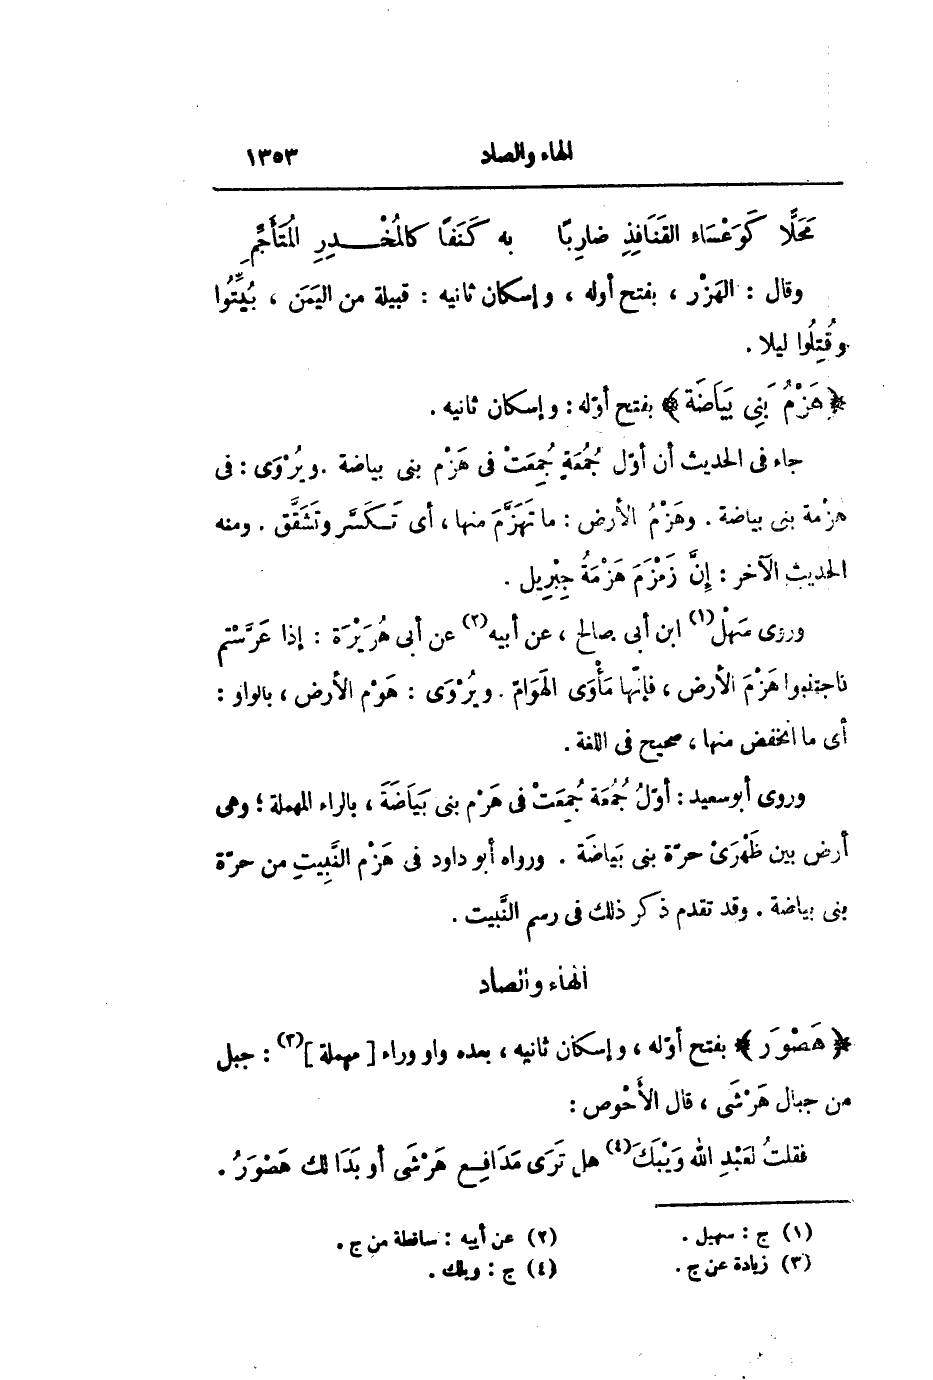 الهاء والصاد ١٣٥٣
مَحَلًّا كَوَعْسَاء القَنَافِذِ ضارِبًا به كَنَفًا كالمُخْدِرِ المُتَأَجِّمِ
وقال : الهَزْر ، بفتح أوله ، وإسكان ثانيه : قبيلة من اليَمَن ، بُيِّتُوا
وقُتِلُوا ليلا .
﴿ هَزْمُ بَنِي بَيَاضَة ﴾ بفتح أوّله : وإسكان ثانيه .
جاء فى الحديث أن أوّل جُمُعَةٍ جُمِعَتْ فى هَزْم بنى بياضة . ويُرْوَى : فى
هزْمة بنى بياضة . وهَزْمُ الأرض : ما تَهَزَّمَ منها ، أى تَكَسَّر وتَشَقَّق . ومنه
الحديث الآخر : إنَّ زَمْزَمَ هَزْمَةُ جِبْرِيل .
وروى سَهْل(١) ابن أبى صالح ، عن أبيه(٢) عن أبى هُرَيْرَة : إذا عَرَّسْتم
فاجتنبوا هَزْمَ الأرض ، فإنّها مَأْوَى الهَوَامّ . ويُرْوَى : هَوْم الأرض ، بالواو :
أى ما انخفض منها ، صحيح فى اللغة .
وروى أبو سعيد : أوّلُ جُمُعَة جُمِعَتْ فى هَرْم بنى بَيَاضَةَ ، بالراء المهملة ؛ وهى
أرض بين ظَهْرَىْ حرّة بنى بَياضَة . ورواه أبو داود فى هَزْم النَّبِيتِ من حرّة
بنى بياضة . وقد تقدم ذكر ذلك فى رسم النَّبيت .
الهاء والصاد
﴿ هَصْوَر ﴾ بفتح أوّله ، وإسكان ثانيه ، بعده واو وراء [ مهملة ](٣) : جبل
من جبال هَرْشَى ، قال الأَحْوص :
فقلتُ لعَبْدِ الله وَيْبَكَ(٤) هل تَرَى مَدَافِع هَرْشَى أو بَدَا لك هَصْوَرُ .
(١) ج : سهيل . (٢) عن أبيه : ساقطة من ج .
(٣) زيادة عن ج . (٤) ج : ويلك .